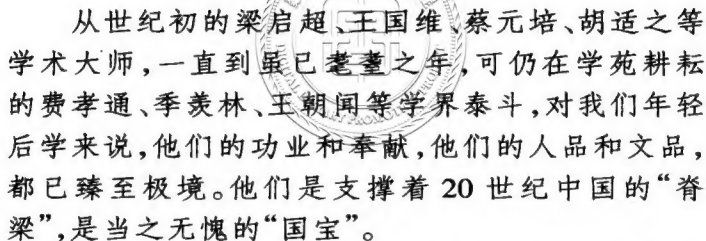 从世纪初的梁启超、王国维、蔡元培、胡适之等
学术大师，一直到虽已耄耋之年，可仍在学苑耕耘
的费孝通、季羡林、王朝闻等学界泰斗，对我们年轻
后学来说，他们的功业和奉献，他们的人品和文品，
都已臻至极境。他们是支撑着 20 世纪中国的“脊
梁”，是当之无愧的“国宝”。